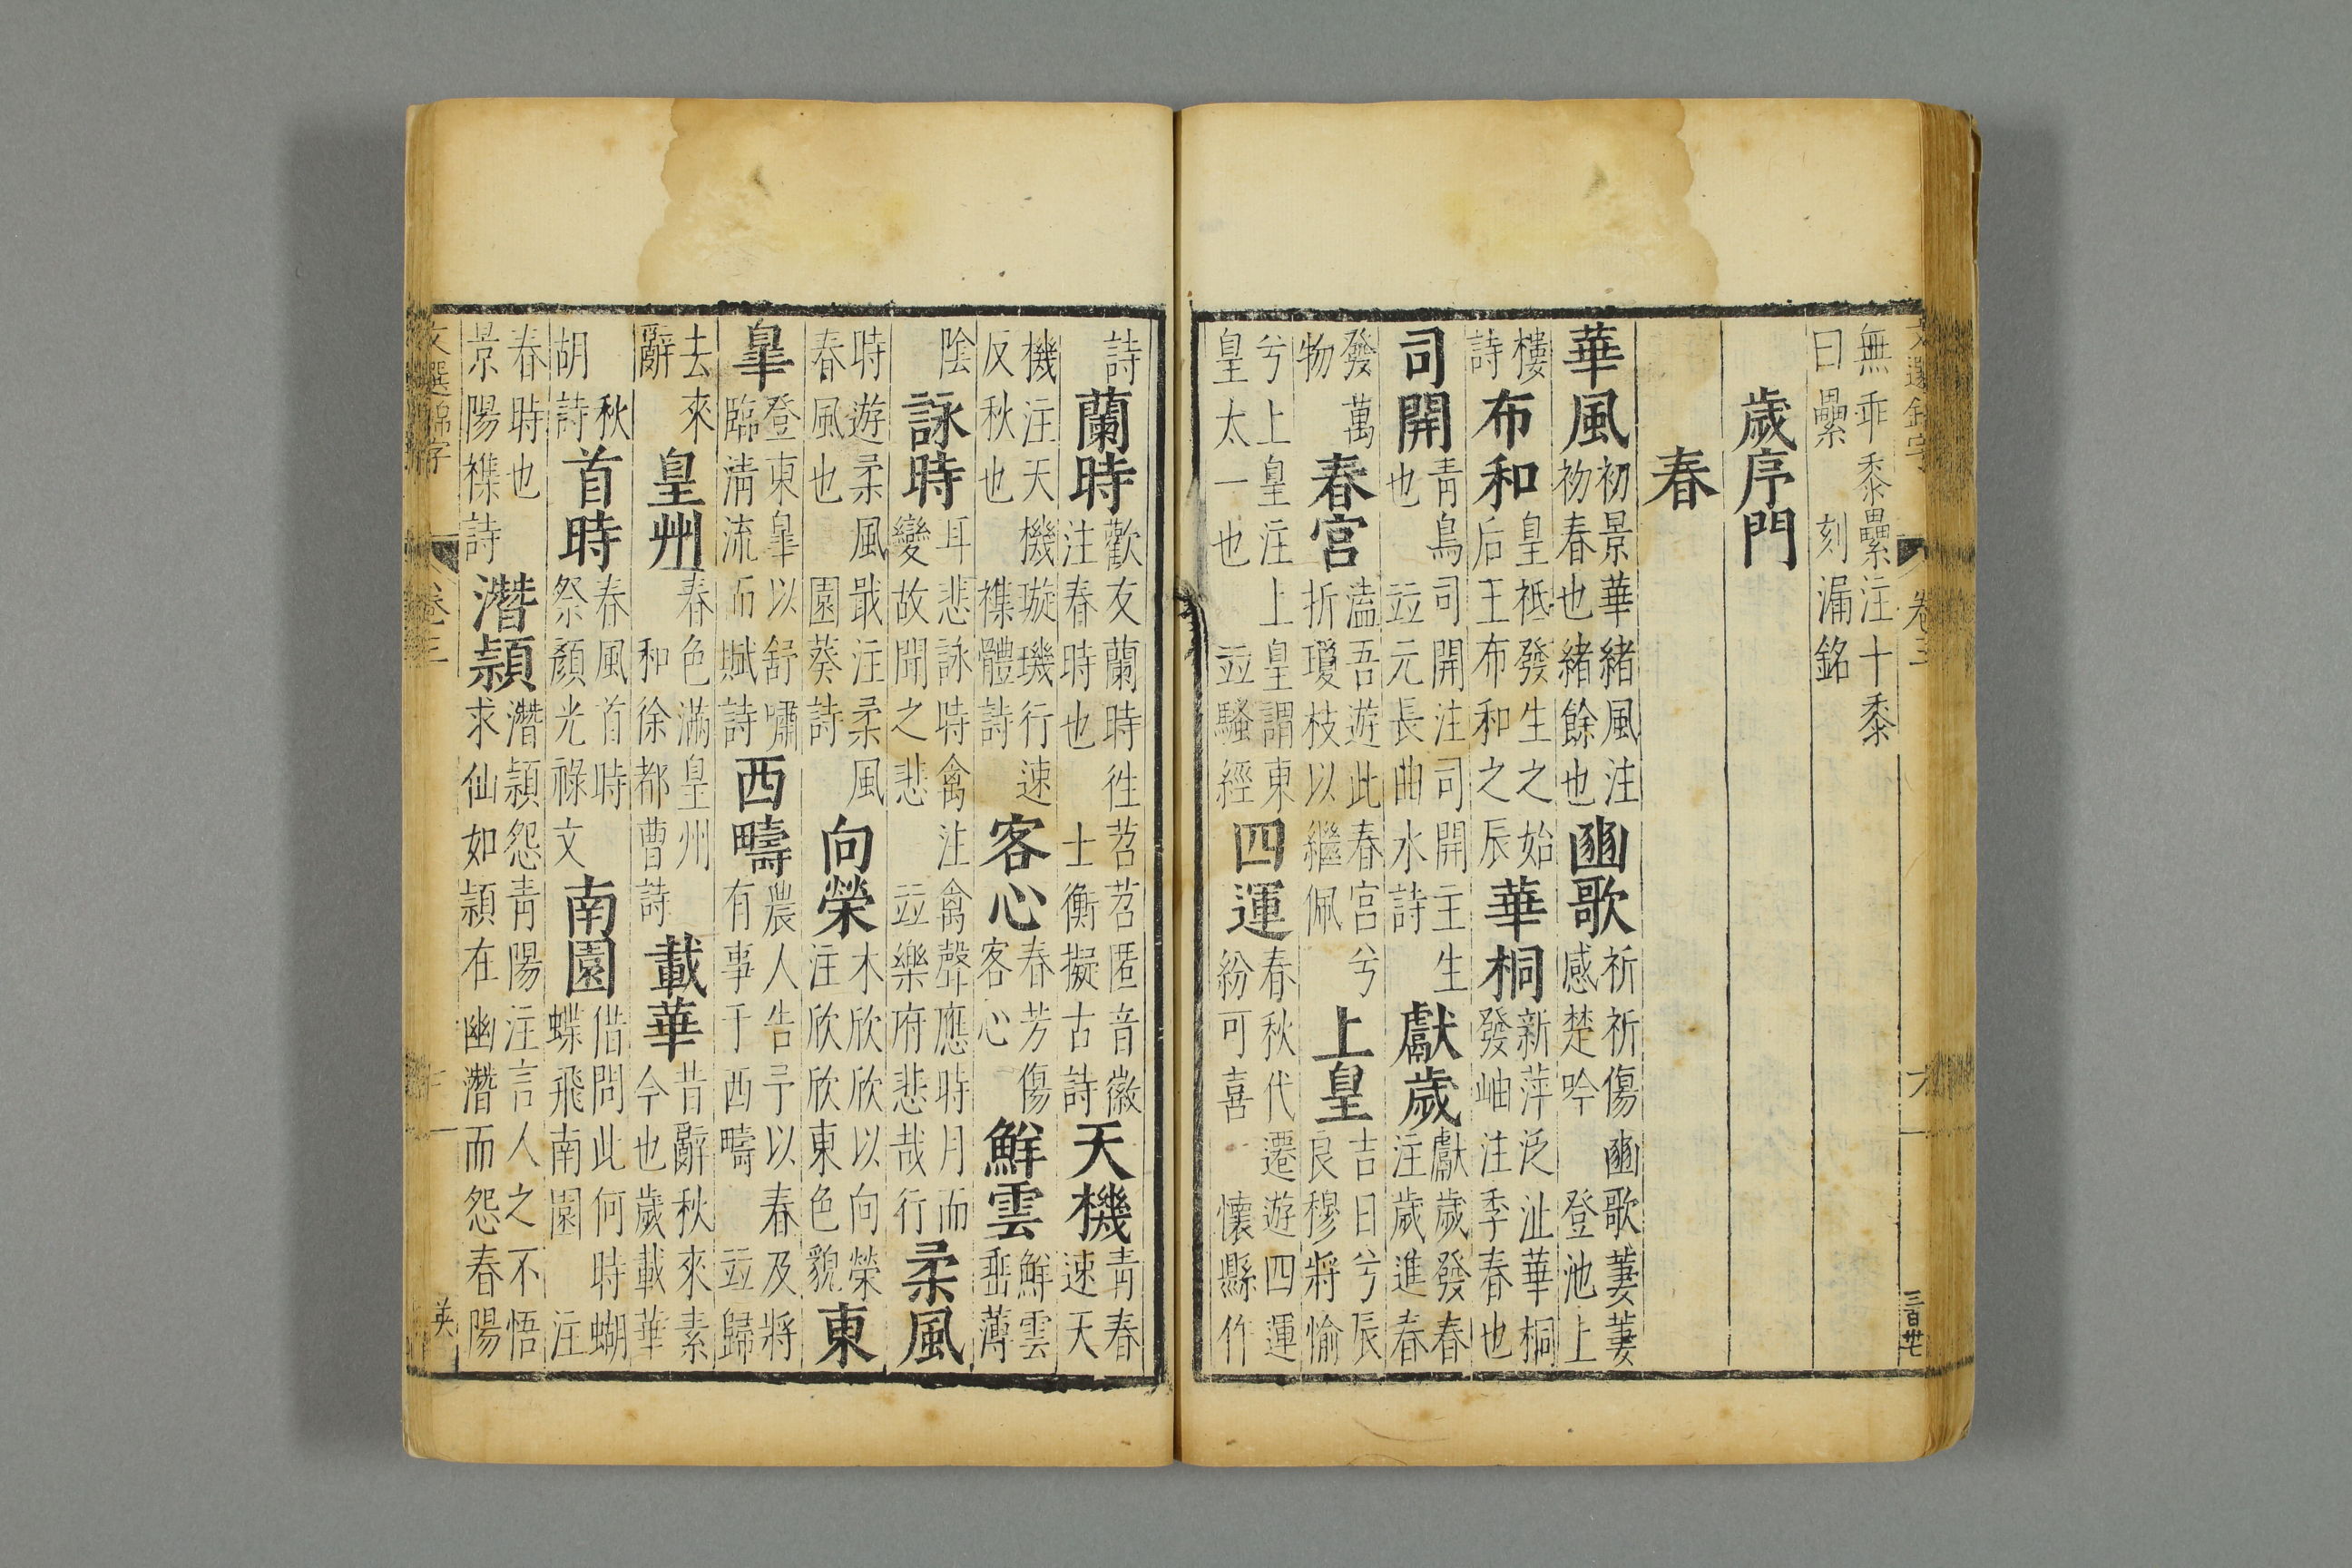 文選錦字 卷三 六
無乖黍纍注十黍
曰纍 刻漏銘
歲序門
春
華風 初景華緒風注 初春也緒餘也 豳歌 祈祈傷豳歌萋萋 感楚吟 登池上
樓 詩 布和 皇祗發生之始 后王布和之辰 華桐 新萍泛沚華桐 發岫注季春也
司開 青鳥司開注司開主生 也 並元長曲水詩 獻歲 獻歲發春 注歲進春
發萬 物 春宮 溘吾遊此春宮兮 折瓊枝以繼佩 上皇 吉日兮辰 良穆將愉
兮上皇注上皇謂東 皇太一也 並騷經 四運 春秋代遷遊四運 紛可喜 懷縣作
詩 蘭時 歡友蘭時往苕苕匿音徽 注春時也 士衡擬古詩 天機 青春 速天
機注天機璇璣行速 反秋也 襍體詩 客心 春芳傷 客心 鮮雲 鮮雲 垂薄
陰 詠時 耳悲詠時禽注禽聲應時月而 變故聞之悲 並樂府悲哉行 柔風
時遊柔風戢注柔風 春風也 園葵詩 向榮 木欣欣以向榮 注欣欣東色貌 東
皐 登東皐以舒嘯 臨淸流而賦詩 西疇 農人告予以春及將 有事于西疇 並歸
去來 辭 皇州 春色滿皇州 和徐都曹詩 載華 昔辭秋來素 今也歲載華
秋 胡詩 首時 春風首時 祭顏光祿文 南園 借問此何時蝴 蝶飛南園 注
春時也 景陽襍詩 潛穎 潛穎怨青陽注言人之不悟 求仙如穎在幽潛而怨春陽
文選錦字 卷三 英